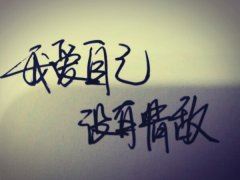 我爱自己
没有情敌